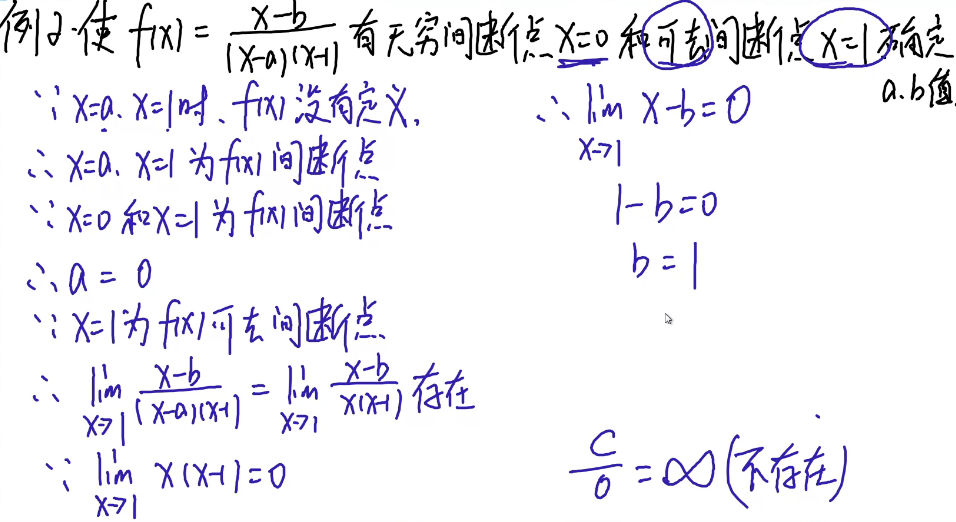 例2.使 f(x) = \frac{x-b}{(x-a)(x-1)} 有无穷间断点 x=0 和可去间断点 x=1 确定
a.b值.
∵ x=a、x=1时、f(x) 没有定义.
∴ x=a、x=1 为 f(x) 间断点
∵ x=0 和 x=1 为 f(x) 间断点
∴ a = 0
∵ x=1 为 f(x) 可去间断点
∴ \lim_{x→1} \frac{x-b}{(x-a)(x-1)} = \lim_{x→1} \frac{x-b}{x(x-1)} 存在
∵ \lim_{x→1} x(x-1) = 0
∴ \lim_{x→1} x-b = 0
1-b=0
b=1
\frac{C}{0} = ∞ (不存在)